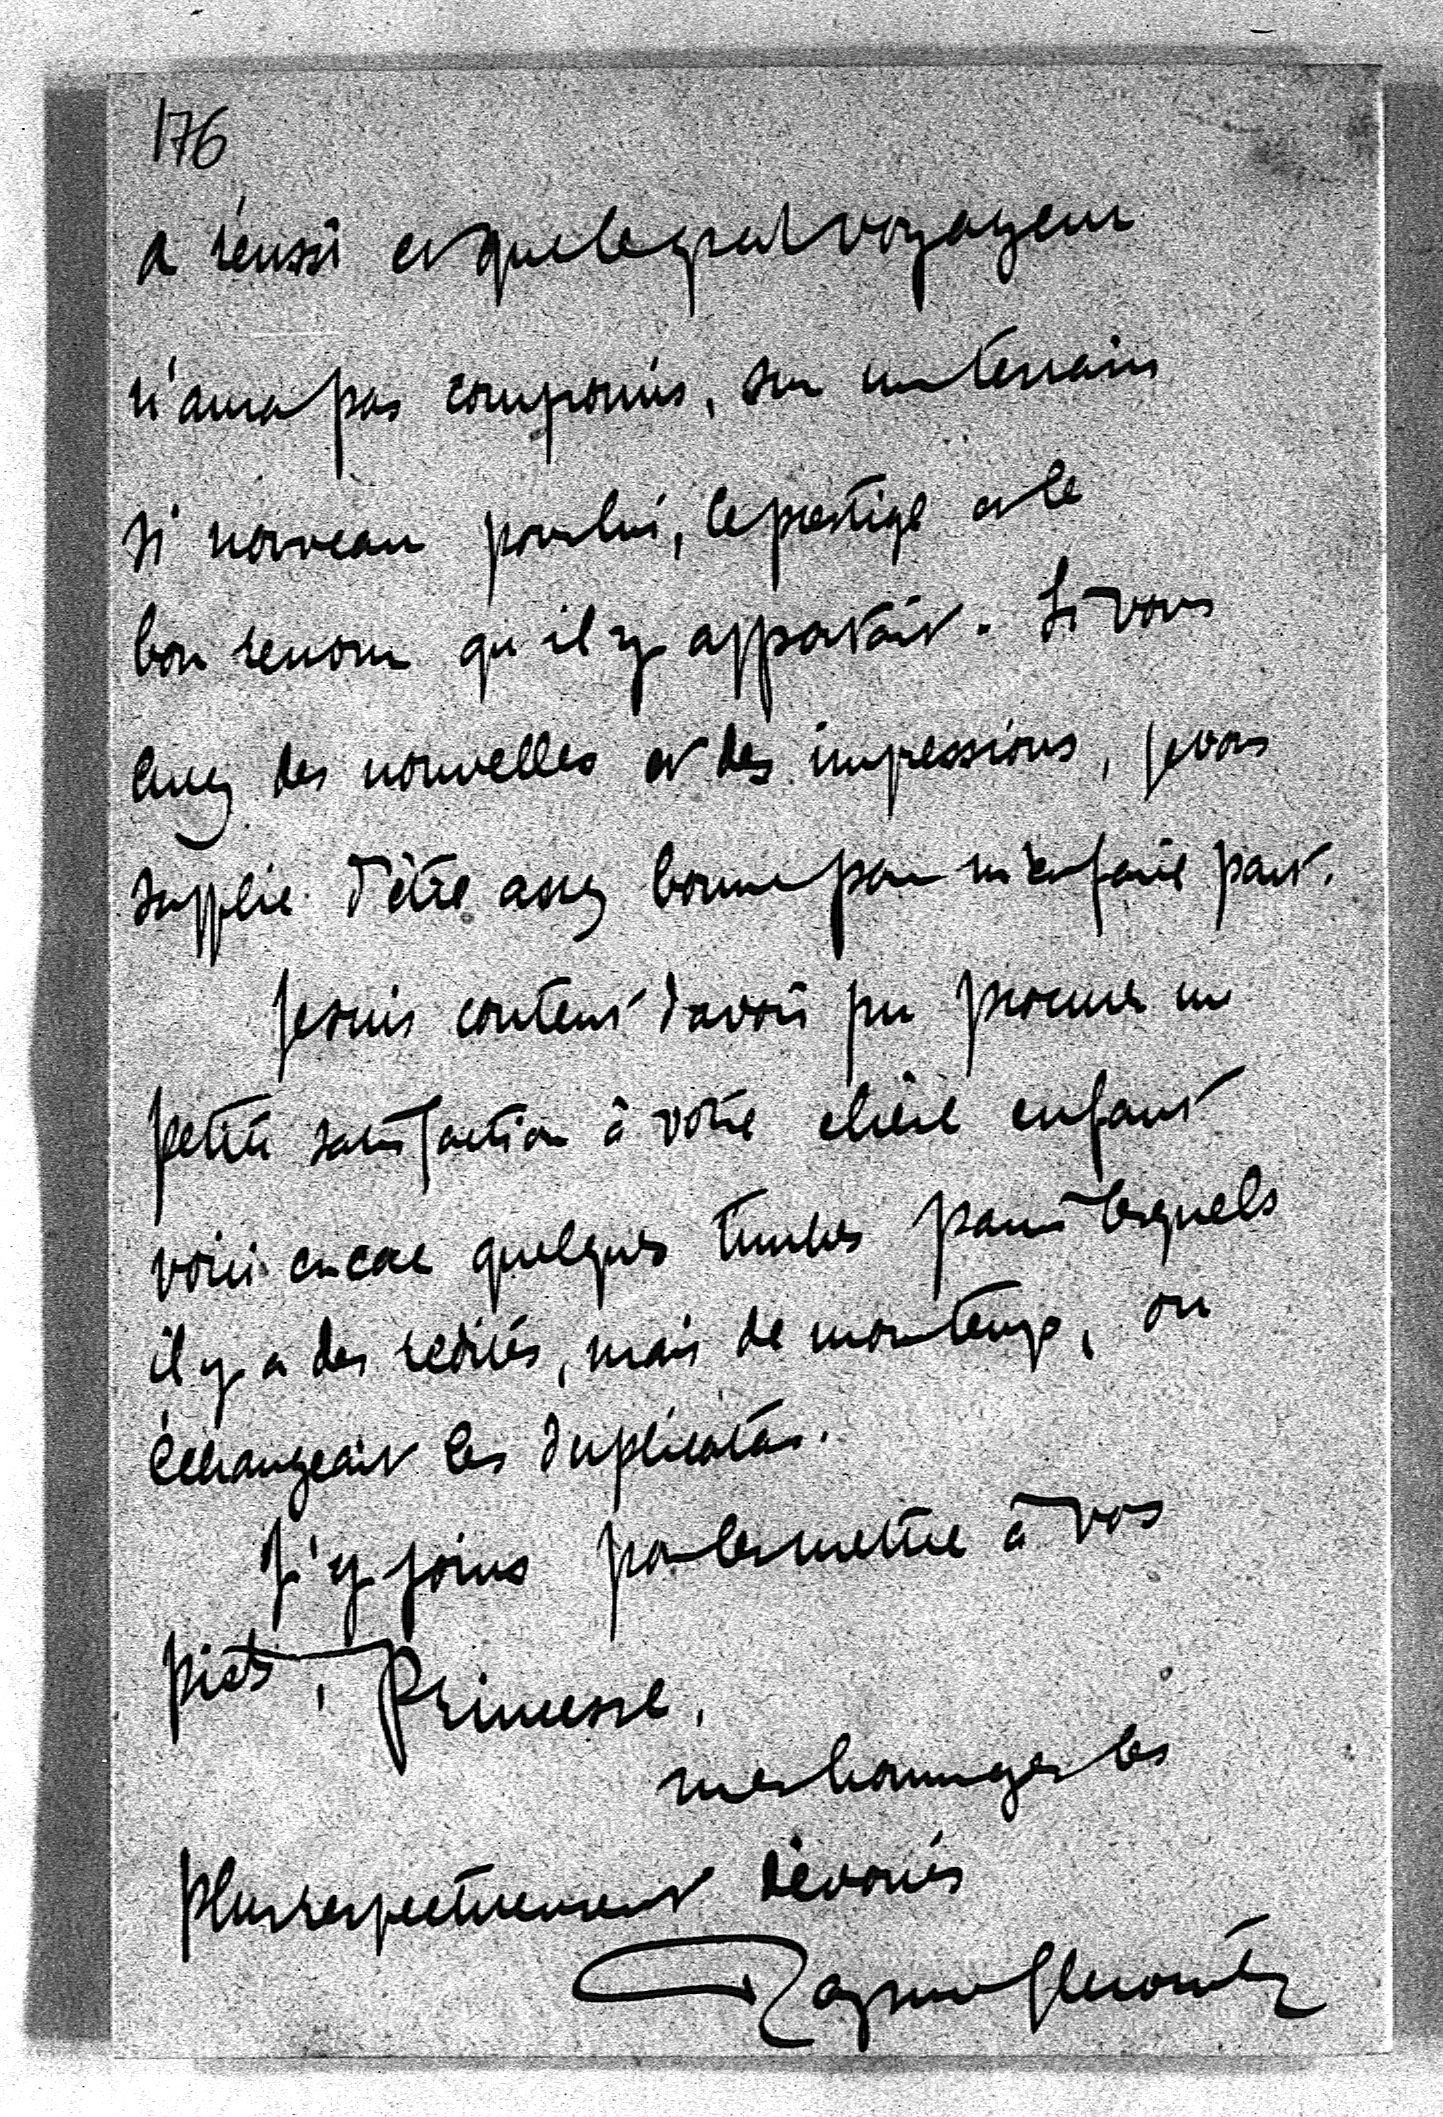 176
a réussi et que le grand voyageur
n'aura pas compromis, sur un terrain
si nouveau pour lui, le prestige et le
bon renom qu'il y apportait. Si vous
avez des nouvelles et des impressions, je vous
supplie d'être assez bonne pour m'en faire part.
Je suis content d'avoir pu procurer une
petite satisfaction à votre chère enfant
voici encore quelques timbres parmi lesquels
il y a des rédités, mais de mon temps, on
échangeait les duplicatas.
J'y joins pour les mettre à vos
pieds, Princesse,
mes hommages les
plus respectueusement dévoués
Raymond